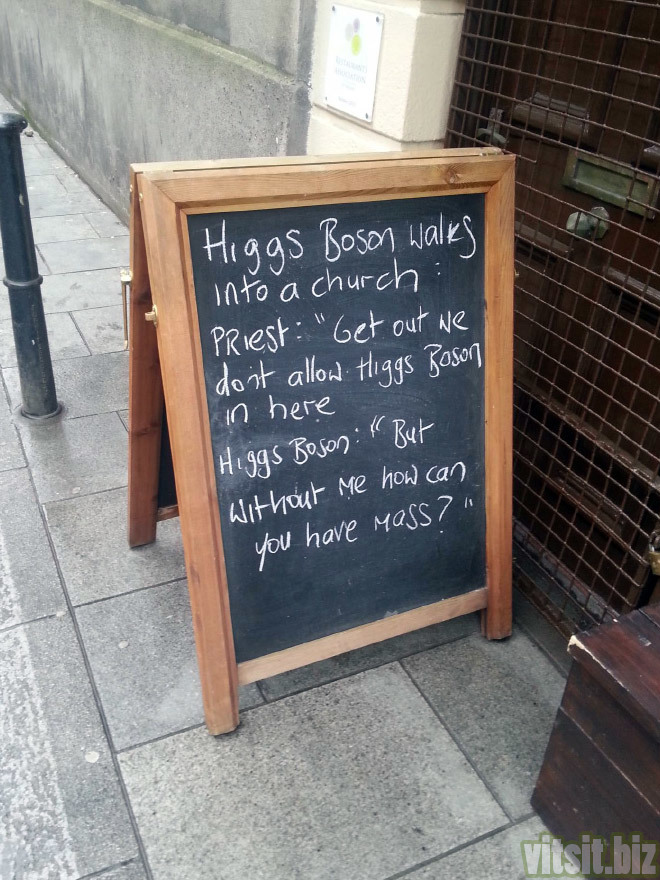 Higgs Boson walks
into a church :
PRiest: "Get out we
don't allow Higgs Boson
in here
Higgs Boson: " But
Without me how can
you have mass? "
vitsit.biz